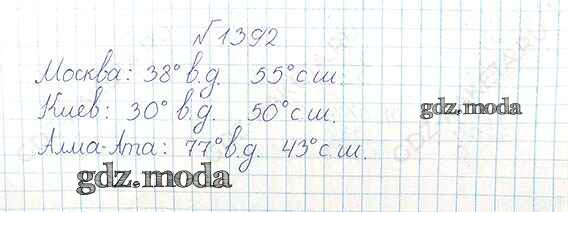 №1392
Москва: 38° в.д. 55° с.ш.
Киев: 30° в.д. 50° с.ш.
gdz.moda
Алма-Ата: 77° в.д. 43° с.ш.
gdz.moda